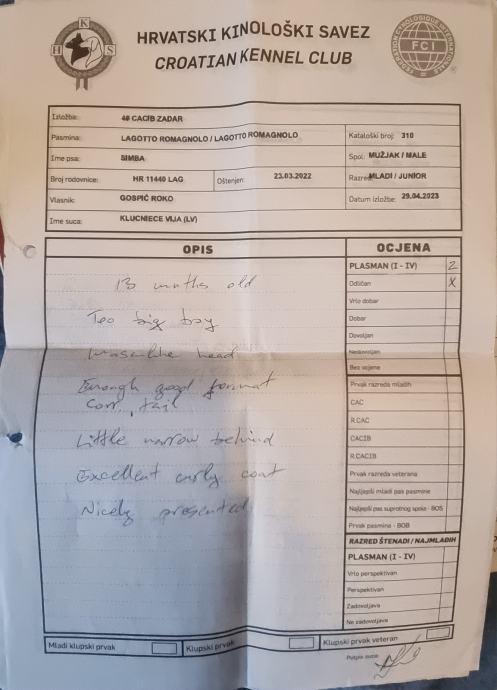 HRVATSKI KINOLOŠKI SAVEZ
CROATIAN KENNEL CLUB
H K S
FEDERATION CYNOLOGIQUE INTERNATIONALE
FCI
Izložba: 48 CACIB ZADAR
Pasmina: LAGOTTO ROMAGNOLO / LAGOTTO ROMAGNOLO
Kataloški broj: 310
Ime psa: SIMBA
Spol: MUŽJAK / MALE
Broj rodovnice: HR 11440 LAG
Oštenjen: 23.03.2022
Razred: MLADI / JUNIOR
Vlasnik: GOSPIĆ ROKO
Datum izložbe: 29.04.2023
Ime suca: KLUCNIECE VIJA (LV)
OPIS
13 months old
Too big boy
Masculine head
Enough good format
Corr. tail
Little narrow behind
Excellent curly coat
Nicely presented
OCJENA
PLASMAN (I - IV) 2
Odličan X
Vrlo dobar
Dobar
Dovoljan
Nedovoljan
Bez ocjene
Prvak razreda mladih
CAC
R.CAC
CACIB
R.CACIB
Prvak razreda veterana
Najljepši mladi pas pasmine
Najljepši pas suprotnog spola - BOS
Prvak pasmine - BOB
RAZRED ŠTENADI / NAJMLAĐIH
PLASMAN (I - IV)
Vrlo perspektivan
Perspektivan
Zadovoljava
Ne zadovoljava
Mladi klupski prvak
Klupski prvak
Klupski prvak veteran
Potpis suca: